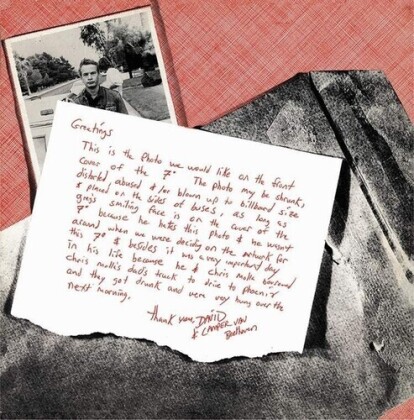 Greetings
This is the photo we would like on the front
cover of the 7". The photo may be shrunk,
distorted abused &/or blown up to billboard size
& placed on the sides of buses, as long as
greg's smiling face is on the cover of the
7" because he hates this photo & he wasnt
around when we were deciding on the artwork for
this 7" & besides it was a very important day
in his life because he & chris molla borrowed
chris molla's dad's truck to drive to phoenix
and they got drunk and were very hung over the
next morning.
Thank you, DAVID
& CAMPER VAN
Beethoven